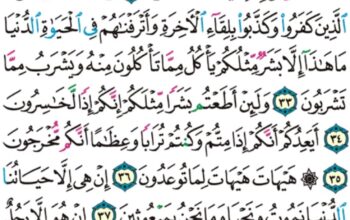 ٱلَّذِينَ كَفَرُوا۟ وَكَذَّبُوا۟ بِلِقَآءِ ٱلْأَخِرَةِ وَأَتْرَفْنَٰهُمْ فِى ٱلْحَيَوٰةِ ٱلدُّنْيَا
مَا هَٰذَآ إِلَّا بَشَرٌ مِّثْلُكُمْ يَأْكُلُ مِمَّا تَأْكُلُونَ مِنْهُ وَيَشْرَبُ مِمَّا
تَشْرَبُونَ ٣٣ وَلَئِنْ أَطَعْتُم بَشَرًا مِّثْلَكُمْ إِنَّكُمْ إِذًا لَّخَٰسِرُونَ
٣٤ أَيَعِدُكُمْ أَنَّكُمْ إِذَا مِتُّمْ وَكُنتُمْ تُرَابًا وَعِظَٰمًا أَنَّكُم مُّخْرَجُونَ
٣٥ ۞ هَيْهَاتَ هَيْهَاتَ لِمَا تُوعَدُونَ ٣٦ إِنْ هِىَ إِلَّا حَيَاتُنَا
ٱلدُّنْيَا نَمُوتُ وَنَحْيَا وَمَا نَحْنُ بِمَبْعُوثِينَ ٣٧ إِنْ هُوَ إِلَّا رَجُلٌ